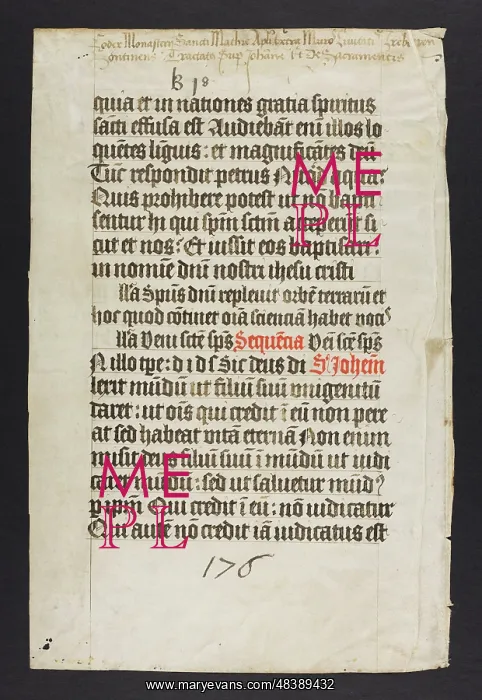 Codex Monasterij Sancti Mathie Apli extra Muros
continens Tractatus sup Johane et De Sacramentis
B 18
quia et in nationes gratia spiritus
sācti effusa est Audiebāt eni illos lo
quētes liguis : et magnificātes deū
Tūc respondit petrus
Quis prohibere potest ut nō bapti
sentur hi qui spm sctm acceperūt si
cut et nos? Et iussit eos baptisari:
in nomie dm nostri ihesu cristi
lla Spūs dm repleuit orbē terrarū et
hoc quod cōtinet oīa scientiā habet uocis
lla Veni scte sps Sequēcia Veni scte sps
N illo tpe: d i ds Sic deus di S Johem
lexit mūdū ut filiū suū vnigenitū
daret : ut ois qui credit i eū non pere
at sed habeat vitā eternā Non enim
misit deus filiū suū i mūdū ut iudi
caret mūdū : sed ut saluetur mūd9
p ipm Qui credit i eū : nō iudicatur
Qui autē nō credit iā iudicatus est
176
ME
PL
ME
PL
www.maryevans.com/48389432